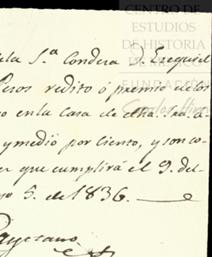 CENTRO DE
ESTUDIOS
DE HISTORIA
DE
FUNDACIÓN
Carlos Slim
la S.ª Condeza D. Ezequiel
Pesos redito ó premio de los
o en la Casa de dha. Sra. a
y medio por ciento, y son co-
er que cumplirá el 9. del
yo 5. de 1836.
Cayetano